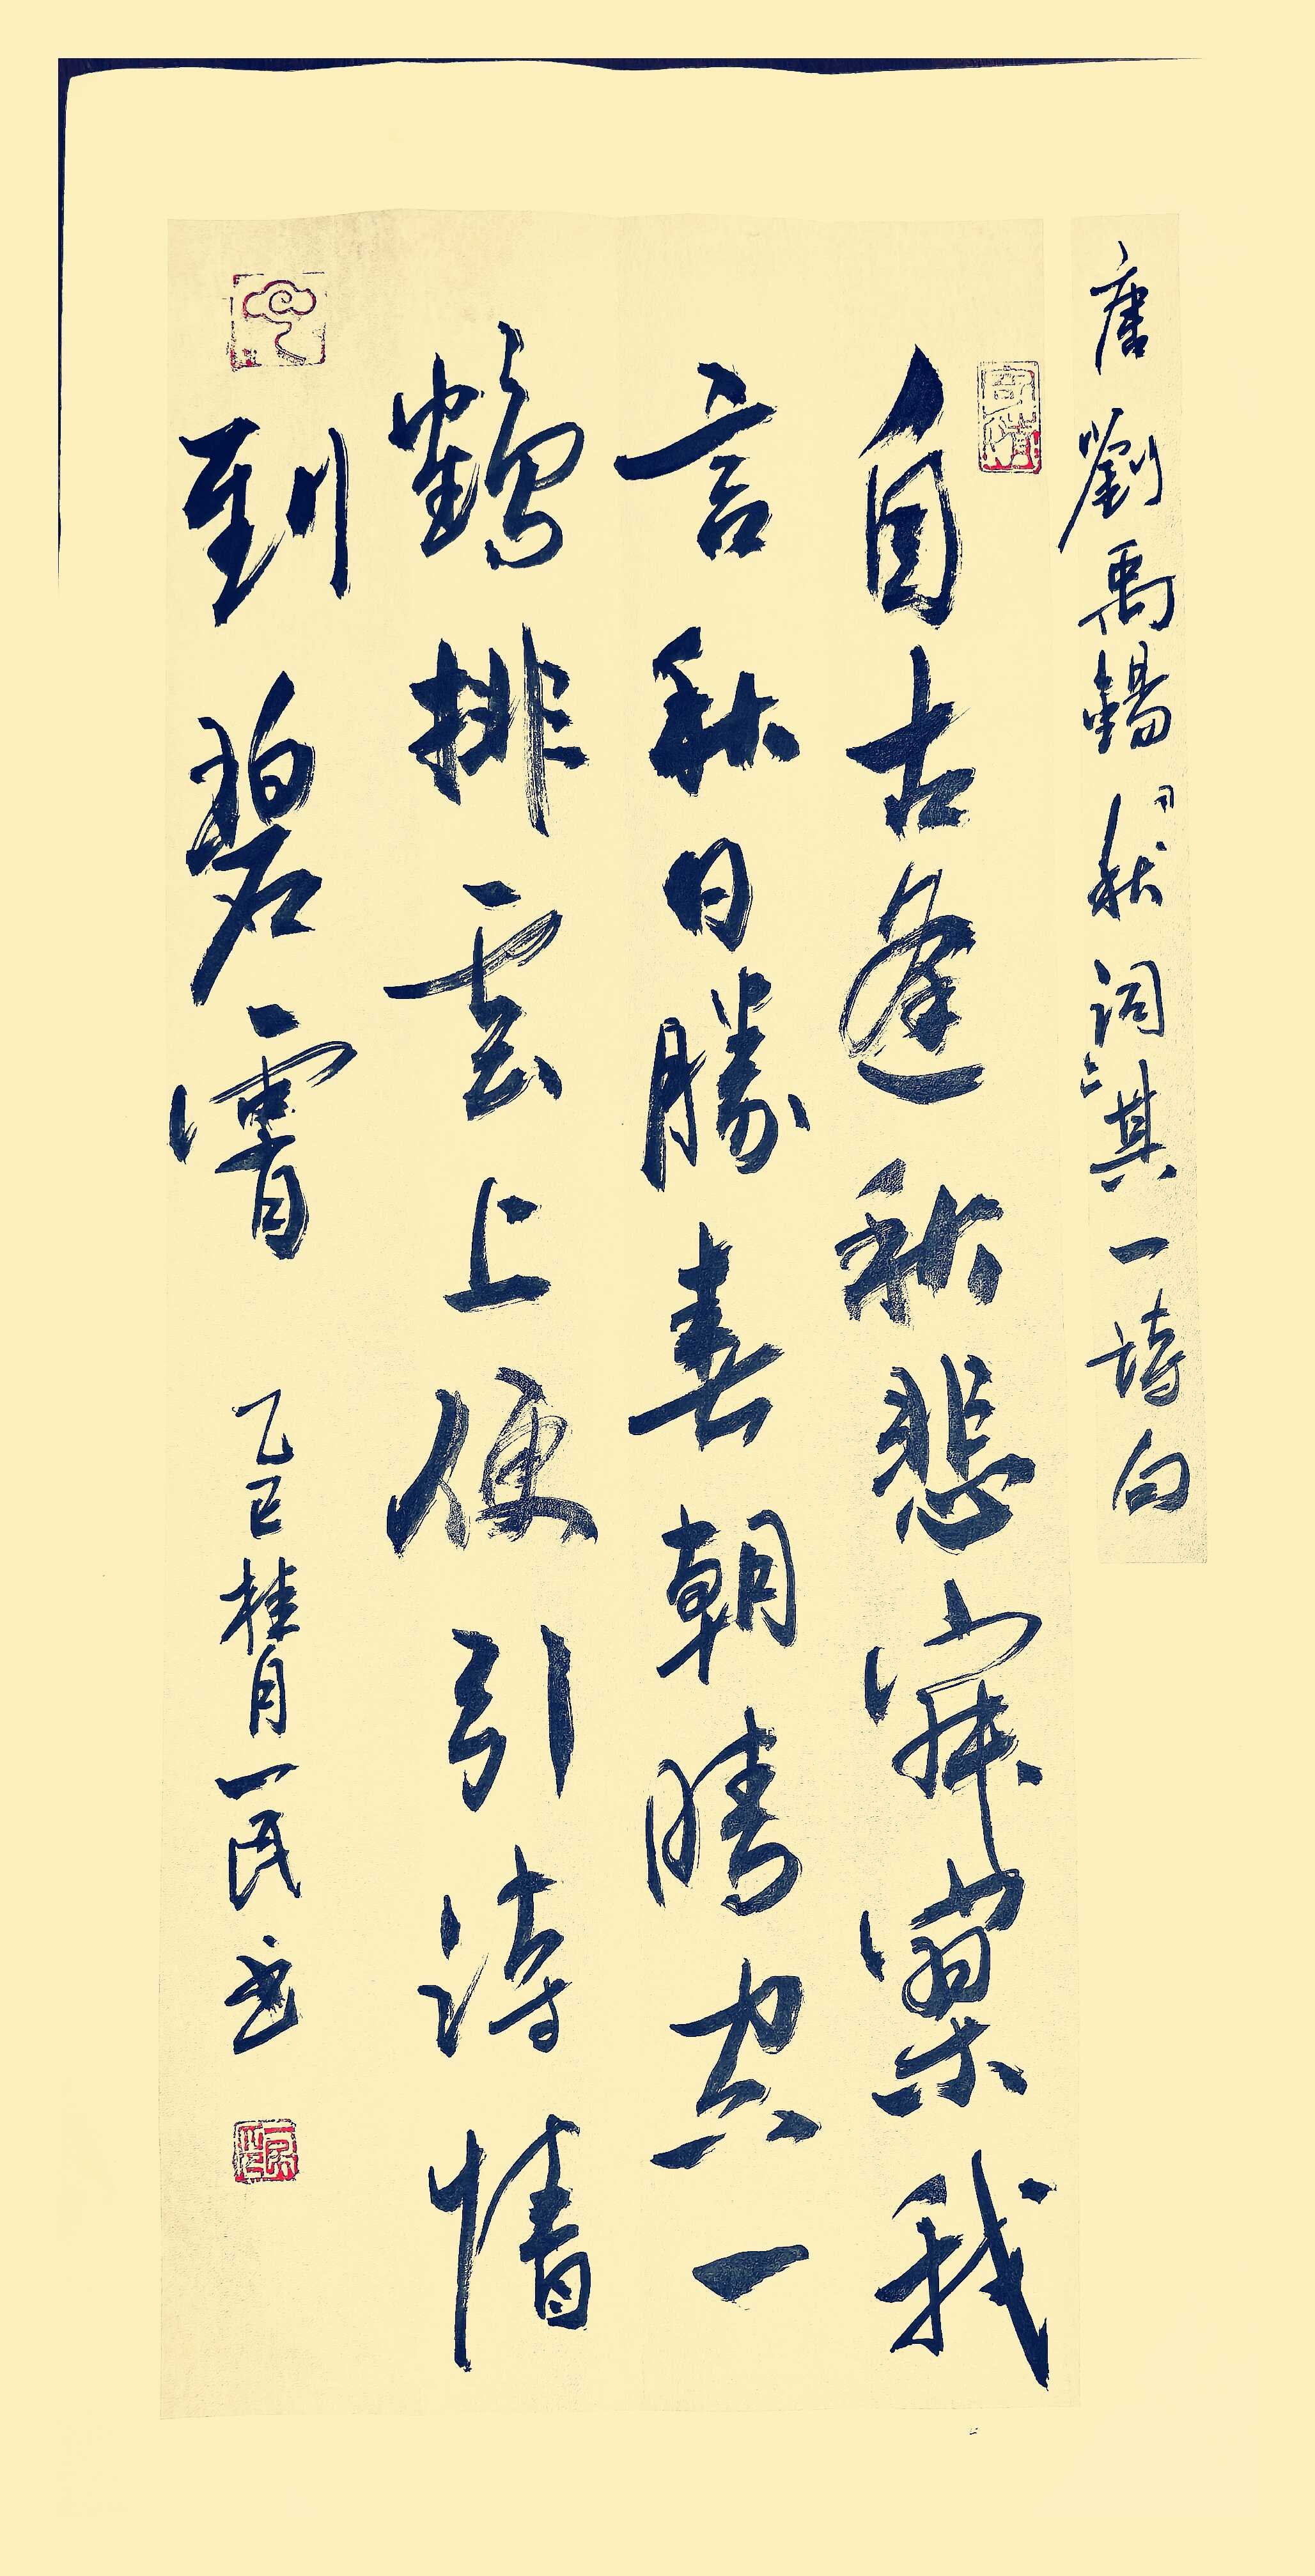 唐劉禹錫『秋詞』其一詩句
寄情
自古逢秋悲寂寥我
言秋日勝春朝晴空一
鶴排雲上便引詩情
到碧霄 乙巳桂月一民书